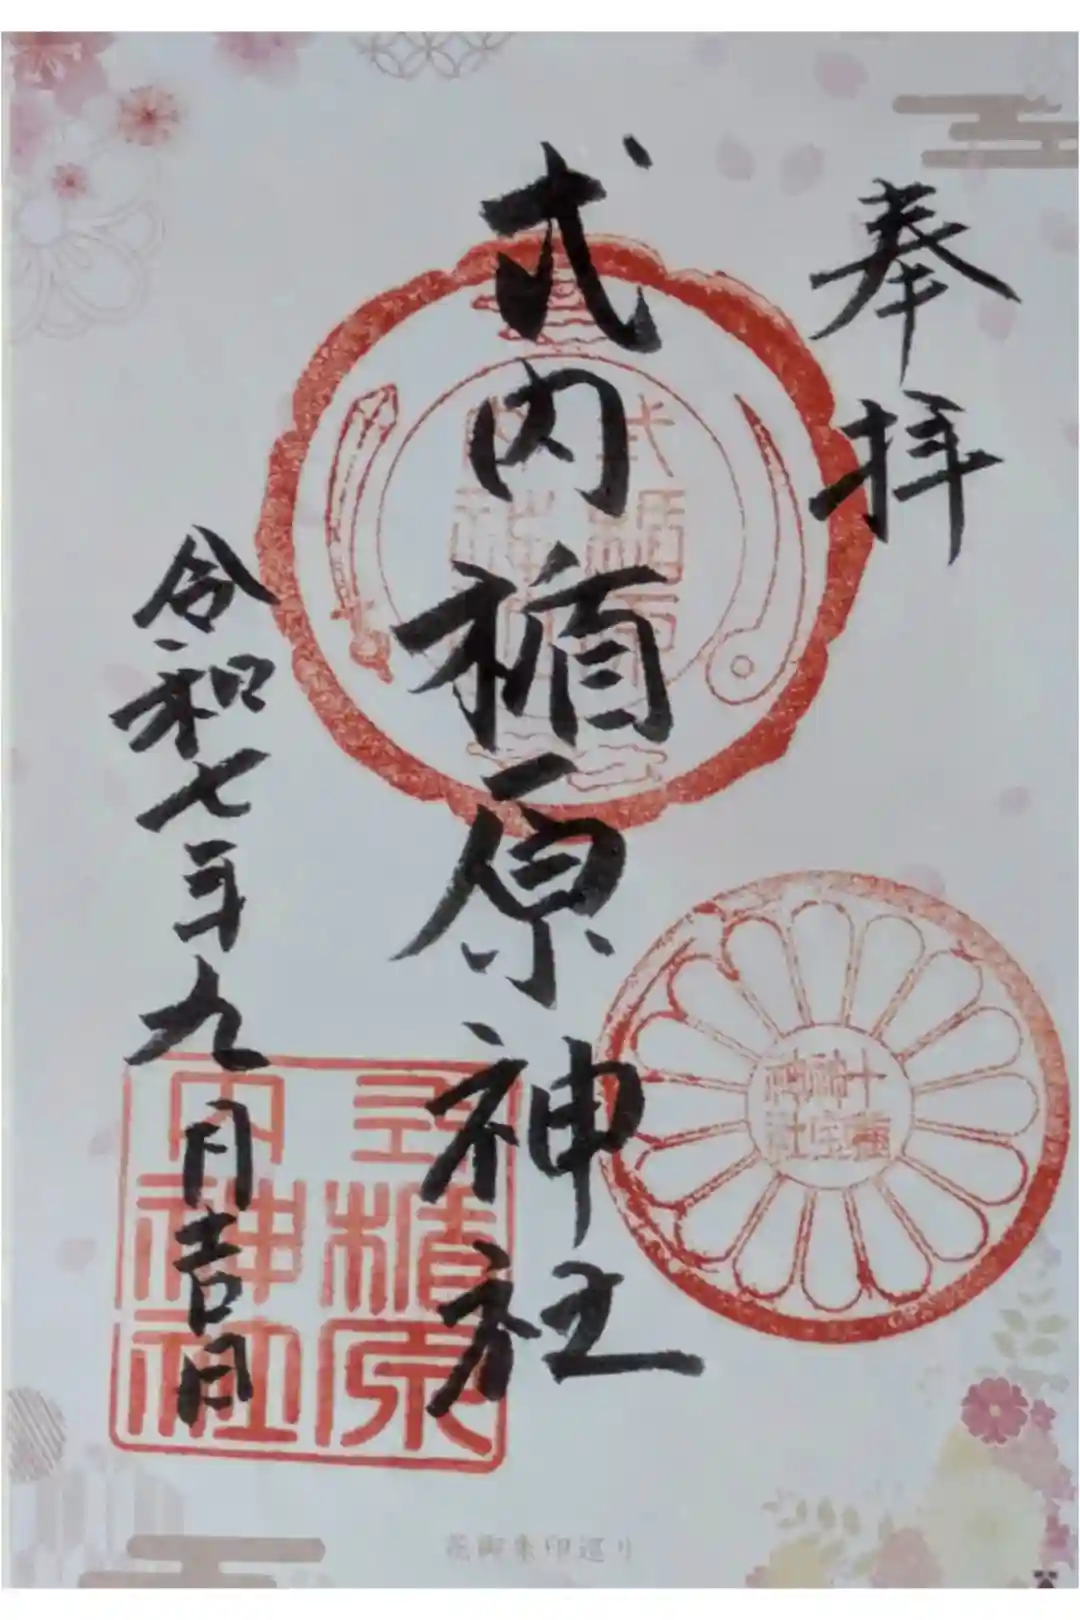 奉拝
式内楯原神社
令和七年九月吉日
式内楯原神社
十種神宝
花御朱印巡り